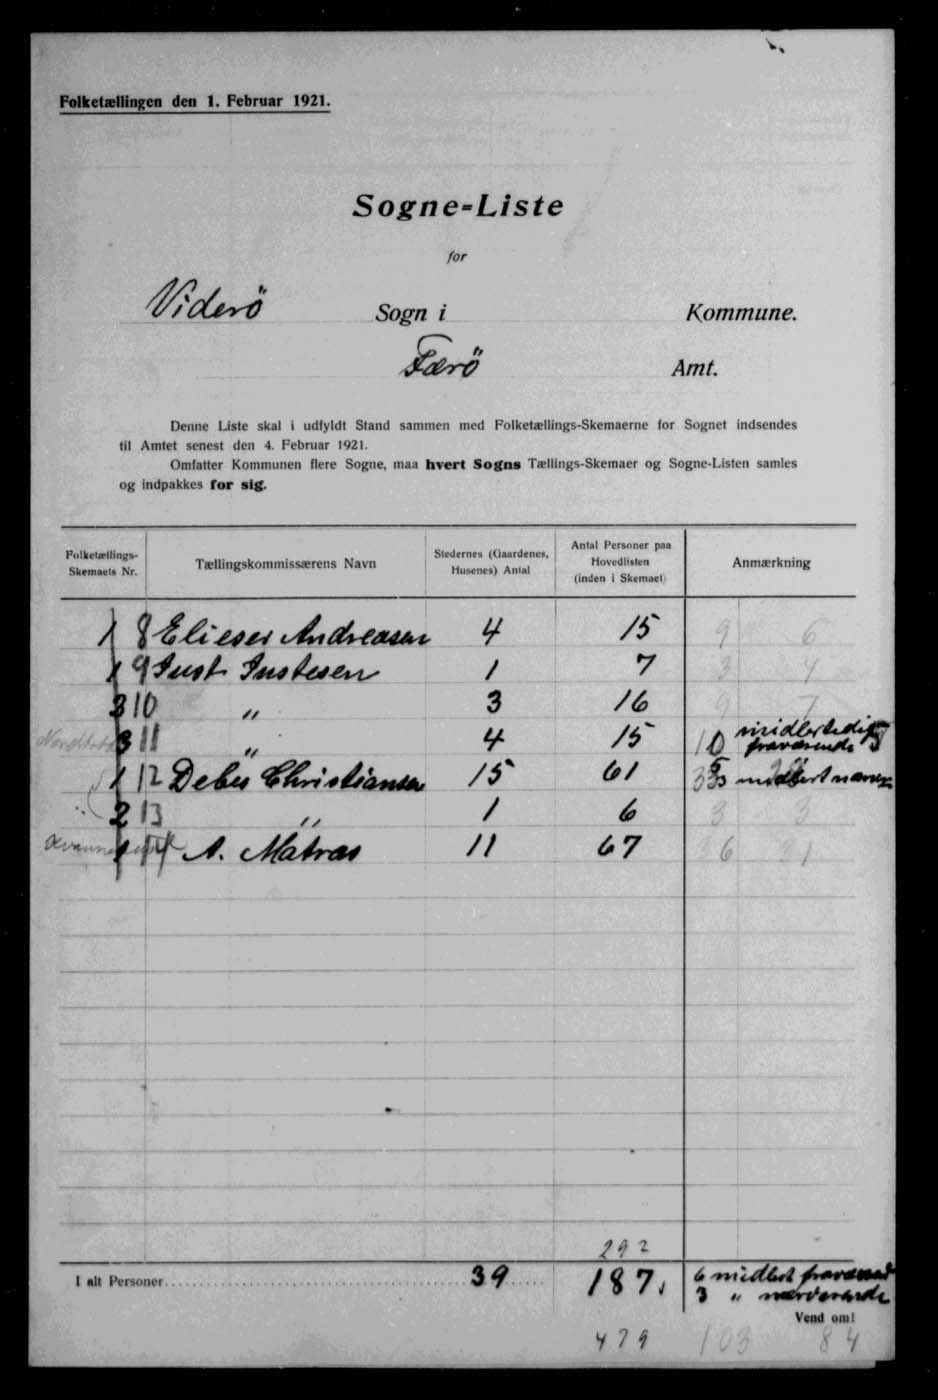 Folketællingen den 1. Februar 1921.
Sogne=Liste
for
Viderö Sogn i Kommune.
Færö Amt.
Denne Liste skal i udfyldt Stand sammen med Folketællings-Skemaerne for Sognet indsendes
til Amtet senest den 4. Februar 1921.
Omfatter Kommunen flere Sogne, maa hvert Sogns Tællings-Skemaer og Sogne-Listen samles
og indpakkes for sig.
Folketællings-Skemaets Nr. Tællingskommissærens Navn Stedernes (Gaardenes, Husenes) Antal Antal Personer paa Hovedlisten (inden i Skemaet) Anmærkning
1 8 Elieser Andreasen 4 15 9 6
1 9 Just Justesen 1 7 3 4
2 10 " 3 16 9 7
3 11 " 4 15 10 midlertidig fraværende 5
1 12 Debes Christiansen 15 61 33 28
2 13 " 1 6 3 3
1 14 A. Matras 11 67 36 31
292
I alt Personer 39 187
6 midlert fraværend
3 " nærværende
Vend om!
479 103 84